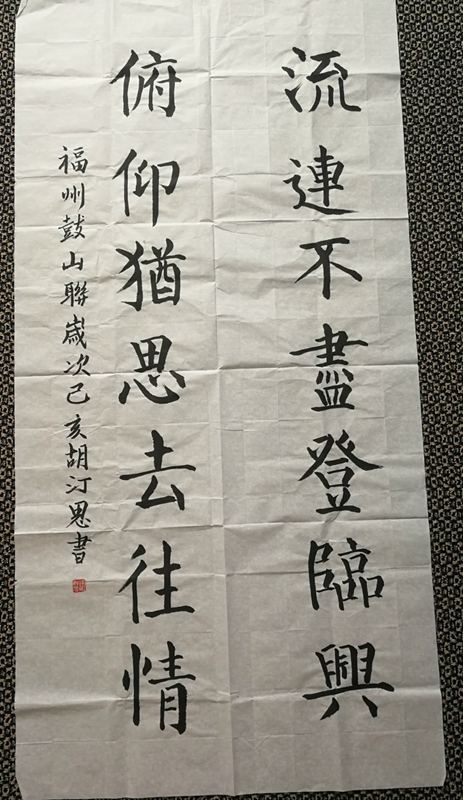 流連不盡登臨興
俯仰猶思去往情
福州鼓山聯歲次己亥胡汀思書